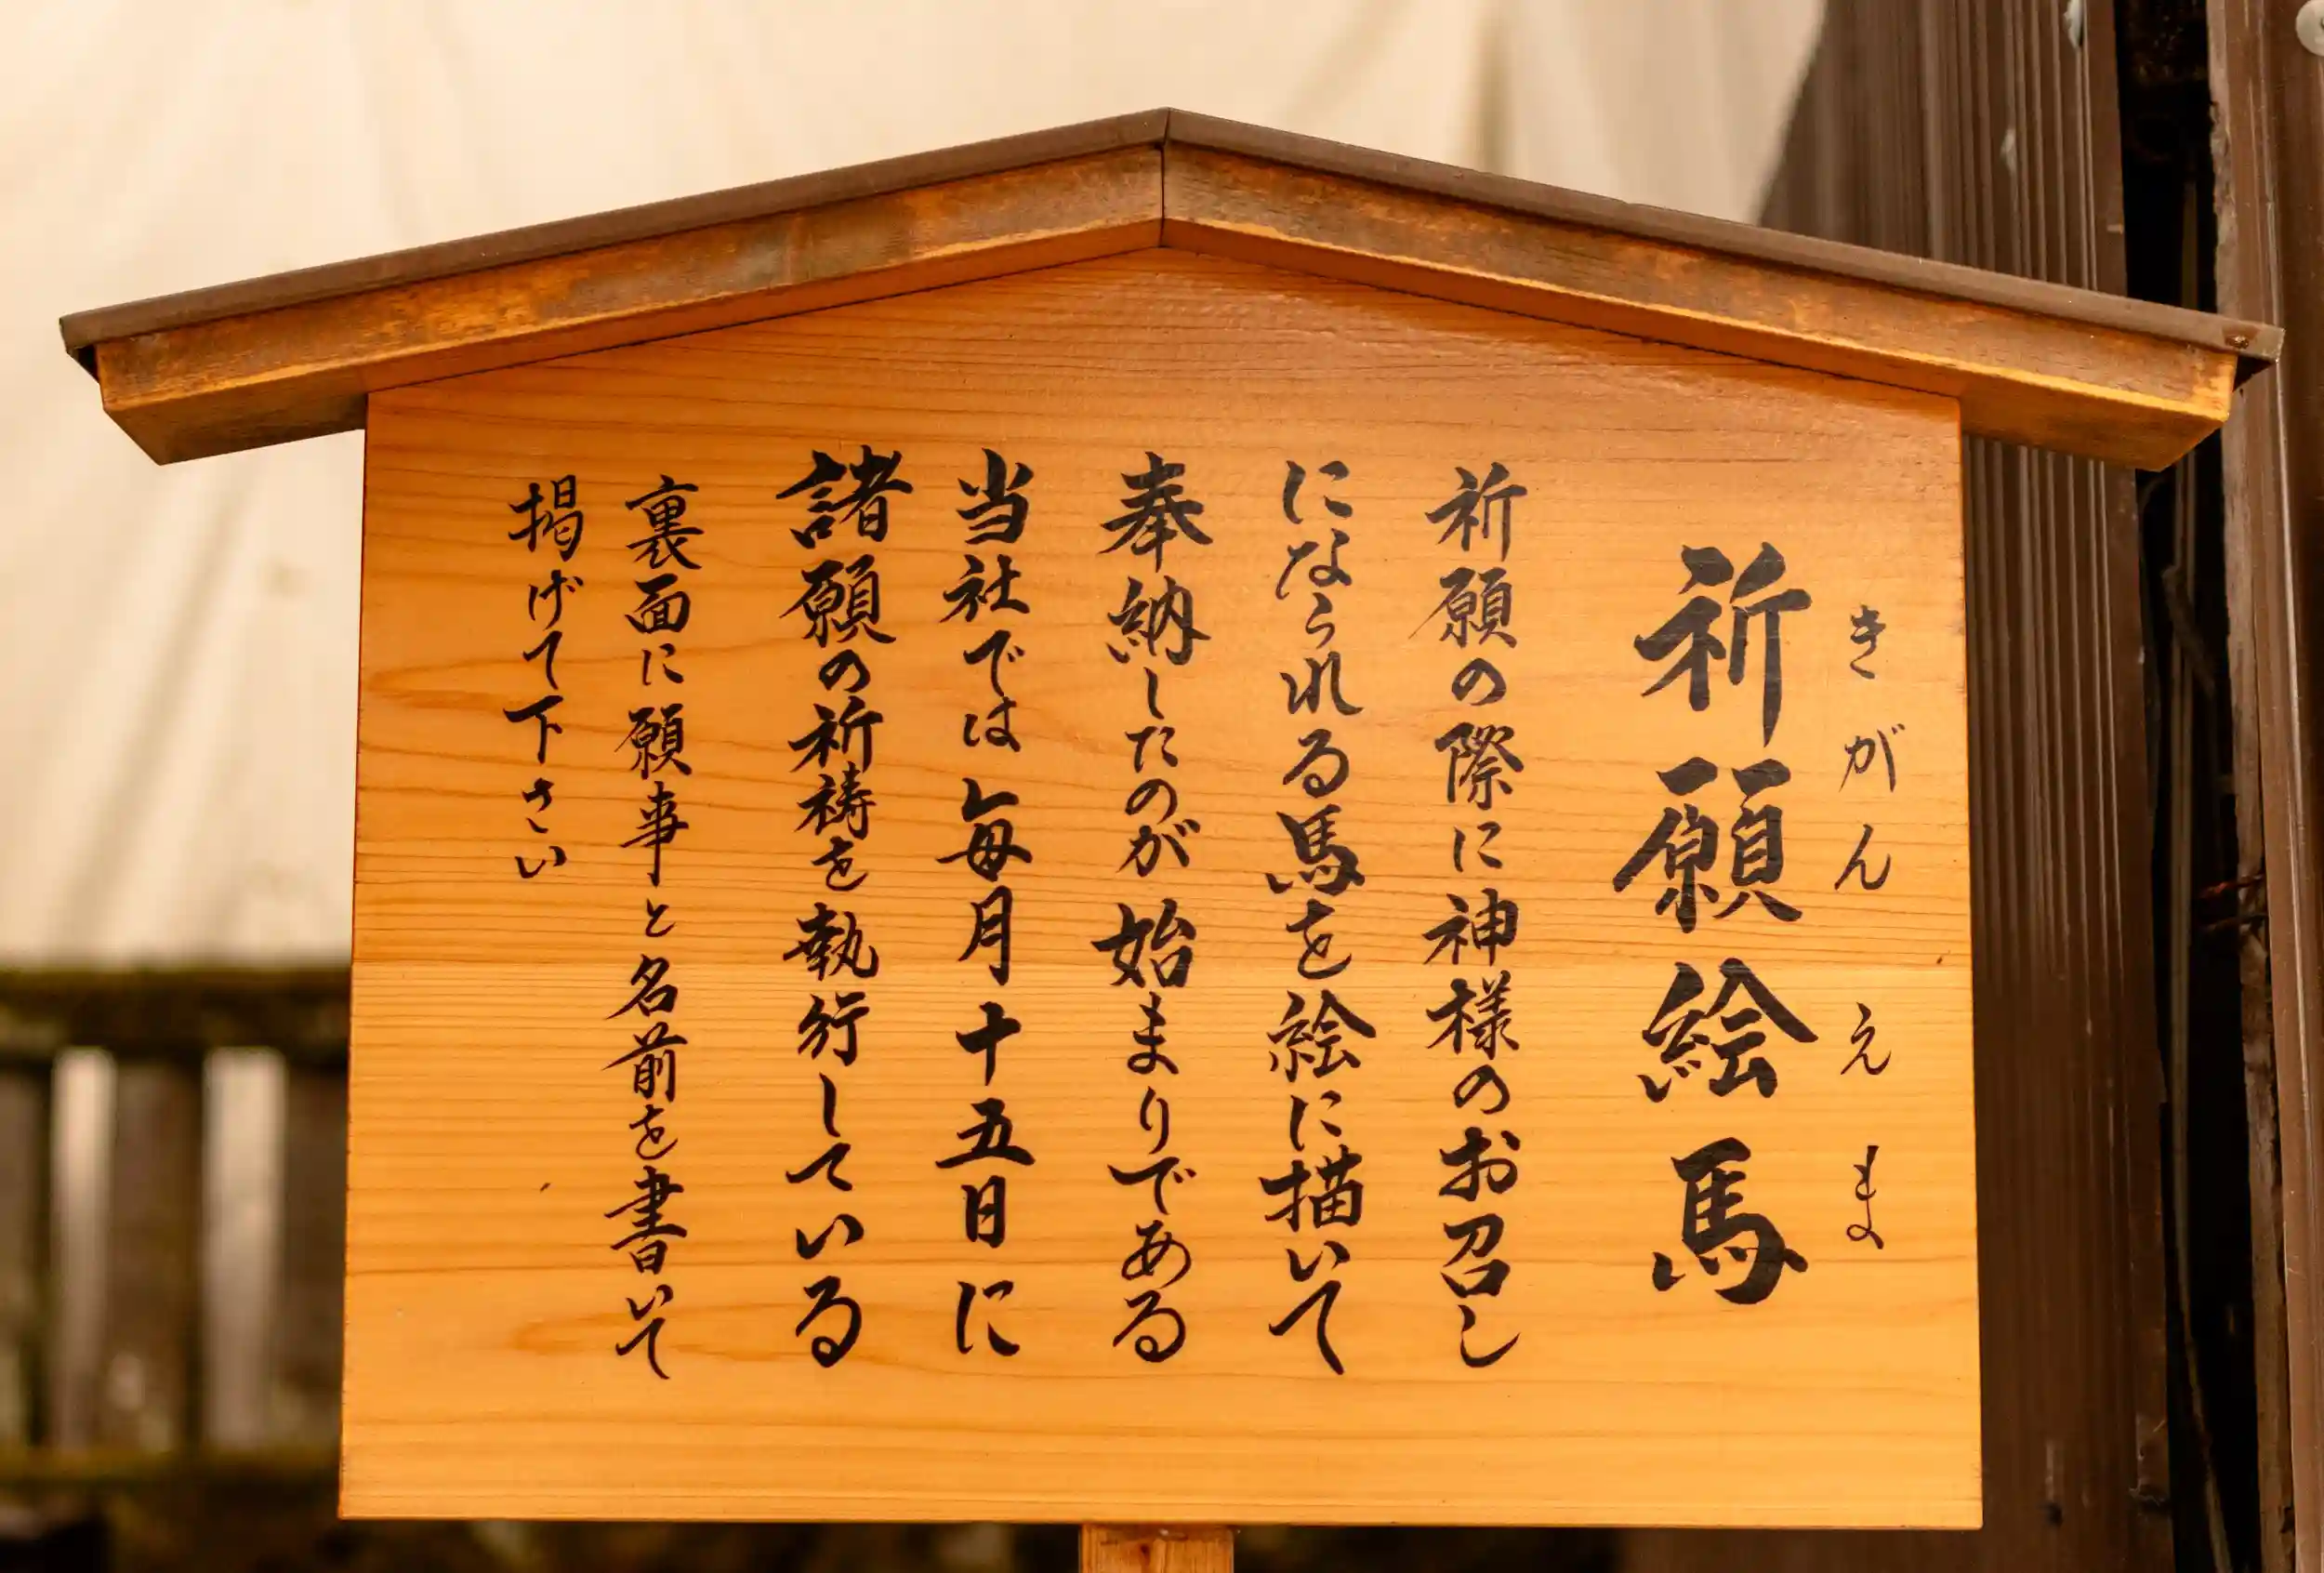 きがんえま
祈願絵馬
祈願の際に神様のお召し
になられる馬を絵に描いて
奉納したのが始まりである
当社では毎月十五日に
諸願の祈祷を執行している
裏面に願事と名前を書いて
掲げて下さい